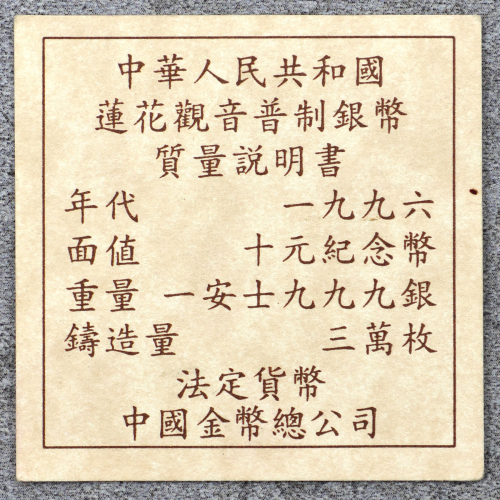 中華人民共和國
蓮花觀音普制銀幣
質量説明書
年代 一九九六
面値 十元紀念幣
重量 一安士九九九銀
鑄造量 三萬枚
法定貨幣
中國金幣總公司